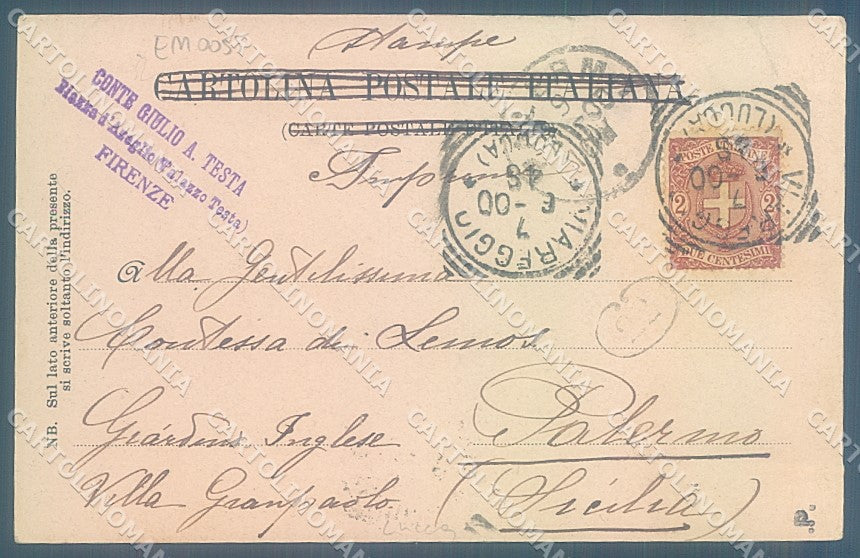 EM005
Stampe
CARTOLINA POSTALE ITALIANA
(CARTE POSTALE D'ITALIE)
CONTE GIULIO A. TESTA
Piazza d'Azeglio (Palazzo Testa)
FIRENZE
VIAREGGIO
(LUCCA)
7
6-00
4S
VIAREGGIO
(LUCCA)
7
6-00
POSTE ITALIANE
2 2
DUE CENTESIMI
Alla Gentilissima
Contessa di Lemos
Giardino Inglese
Palermo
Villa Gianpaolo
(Sicilia)
NB. Sul lato anteriore della presente
si scrive soltanto l'indirizzo.
Lucca
P.
CARTOLINOMANIA